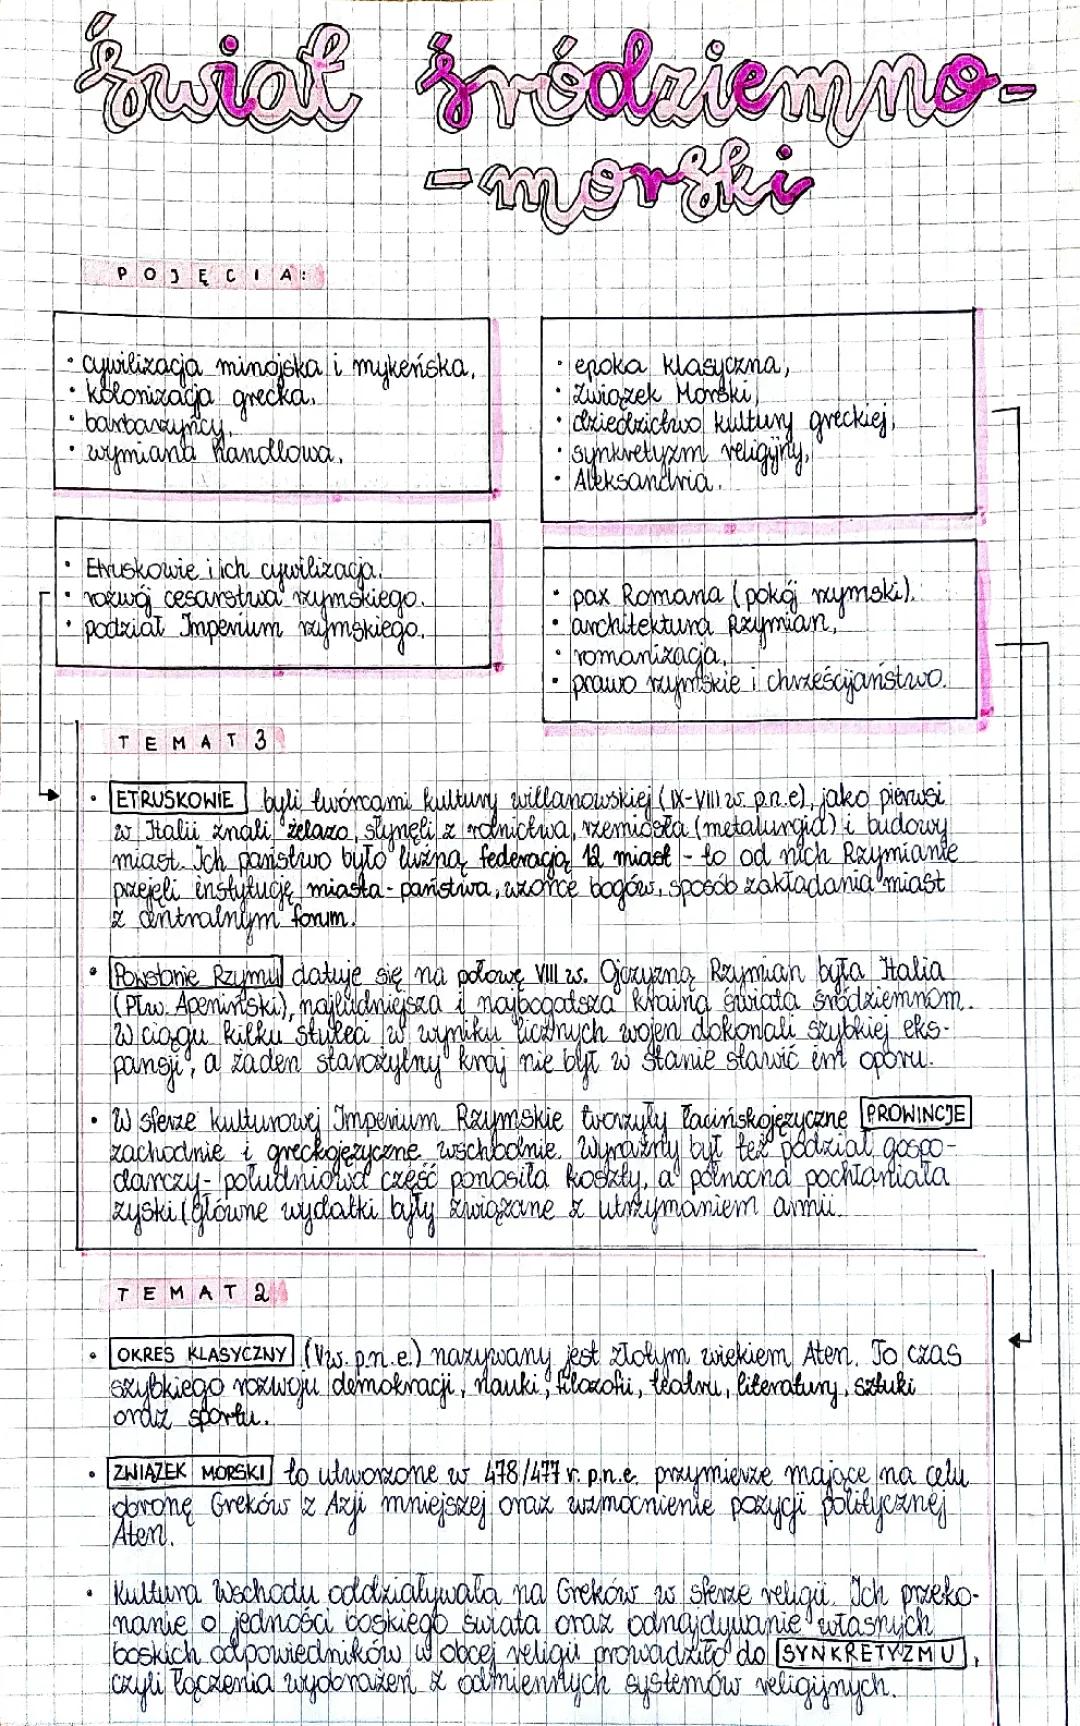 świat śródziemno-
-morski
POJĘCIA:
• cywilizacja minojska i mykeńska,
• kolonizacja grecka,
• barbarzyńcy,
• wymiana handlowa.
• epoka klasyczna,
• Związek Morski,
• dziedzictwo kultury greckiej,
• synkretyzm religijny,
• Aleksandria.
• Etruskowie i ich cywilizacja.
• rozwój cesarstwa rzymskiego.
• podział Imperium rzymskiego.
• pax Romana (pokój rzymski).
• architektura Rzymian,
• romanizacja,
• prawo rzymskie i chrześcijaństwo.
TEMAT 3
• ETRUSKOWIE byli twórcami kultury willanowskiej (IX-VIII w. p.n.e), jako pierwsi
w Italii znali żelazo, słynęli z rolnictwa, rzemiosła (metalurgia) i budowy
miast. Ich państwo było luźną federacją 12 miast - to od nich Rzymianie
przejęli instytucję miasta-państwa, wzorce bogów, sposób zakładania miast
z centralnym forum.
• Powstanie Rzymu datuje się na połowę VIII w. Ojczyzną Rzymian była Italia
(Płw. Apeniński), najludniejsza i najbogatsza kraina świata śródziemnom.
W ciągu kilku stuleci w wyniku licznych wojen dokonali szybkiej eks-
pansji, a żaden starożytny kraj nie był w stanie stawić im oporu.
• W sferze kulturowej Imperium Rzymskie tworzyły łacińskojęzyczne PROWINCJE
zachodnie i greckojęzyczne wschodnie. Wyraźny był też podział gospo-
darczy- południowa część ponosiła koszty, a północna pochłaniała
zyski (główne wydatki były związane z utrzymaniem armii.
TEMAT 2
• OKRES KLASYCZNY (V w. p.n.e.) nazywany jest złotym wiekiem Aten. To czas
szybkiego rozwoju demokracji, nauki, filozofii, teatru, literatury, sztuki
oraz sportu.
• ZWIĄZEK MORSKI to utworzone w 478/477 r. p.n.e. przymierze mające na celu
obronę Greków z Azji mniejszej oraz wzmocnienie pozycji politycznej
Aten.
• Kultura Wschodu oddziaływała na Greków w sferze religii. Ich przeko-
nanie o jedności boskiego świata oraz odnajdywanie własnych
boskich odpowiedników w obcej religii prowadziło do SYNKRETYZMU,
czyli łączenia wyobrażeń z odmiennych systemów religijnych.